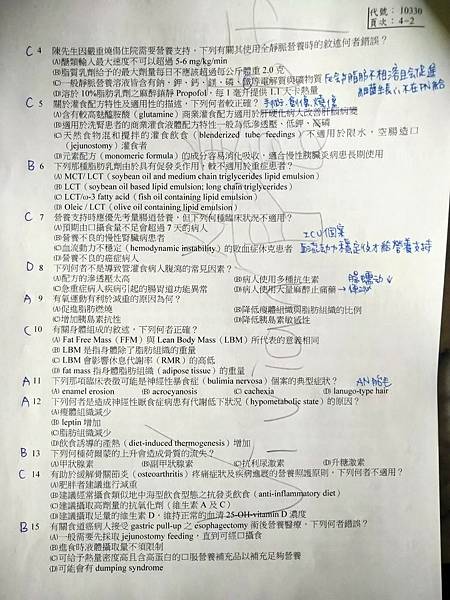 代號：10330
頁次：4-2
C 4 陳先生因嚴重燒傷住院需要營養支持，下列有關其使用全靜脈營養時的敘述何者錯誤？
(A)醣類輸入最大速度不可以超過 5-6 mg/kg/min
(B)脂質乳劑給予的最大劑量每日不應該超過每公斤體重 2.0 克
(C)一般靜脈營養溶液皆含有鈉、鉀、鈣、鎂、磷、鐵
(D)溶於 10%脂肪乳劑之麻醉鎮靜劑 Propofol，每 1 毫升提供 1.1 大卡熱量
C 5 關於灌食配方特性及適用性的描述，下列何者較正確？
(A)含有較高麩醯胺酸（glutamine）商業灌食配方適用於肝硬化病人改善肝腦病變
(B)適用於洗腎患者的商業灌食液體配方特性一般為低滲透壓、低鉀、高磷
(C)天然食物混和攪拌的灌食飲食（blenderized tube feedings）不適用於限水，空腸造口
（jejunostomy）灌食者
(D)元素配方（monomeric formula）的成分容易消化吸收，適合慢性胰臟炎病患長期使用
B 6 下列那種脂肪乳劑由於具有促發炎作用，較不適用於重症患者？
(A) MCT/ LCT（soybean oil and medium chain triglycerides lipid emulsion）
(B) LCT（soybean oil based lipid emulsion; long chain triglycerides）
(C) LCT/ω-3 fatty acids（fish oil containing lipid emulsion）
(D) Oleic / LCT（olive oil containing lipid emulsion）
C 7 營養支持時應優先考量腸道營養，但下列何種臨床狀況不適用？
ICU個案
(A)預期由口攝食量不足會超過 7 天的病人
(B)營養不良的慢性腎臟病患者
(C)血流動力不穩定（hemodynamic instability）的敗血症休克患者
血流動力穩定後才給營養支持
(D)營養不良的癌症病人
D 8 下列何者不是導致管灌食病人腹瀉的常見因素？
(A)配方的滲透壓太高
(B)病人使用多種抗生素
腸蠕動↓
(C)急重症病人疾病引起的腸胃道功能異常
(D)病人使用大量麻醉止痛藥
A 9 有氧運動有利於減重的原因為何？
(A)促進脂肪燃燒
(B)降低瘦體組織與脂肪組織的比例
(C)增加胰島素抗性
(D)降低胰島素敏感性
C 10 有關身體組成的敘述，下列何者正確？
(A) Fat Free Mass（FFM）與 Lean Body Mass（LBM）所代表的意義相同
(B) LBM 是指身體除了脂肪組織的重量
(C) LBM 會影響休息代謝率（RMR）的高低
(D) fat mass 指身體脂肪組織（adipose tissue）的重量
A 11 下列那項臨床表徵可能是神經性暴食症（bulimia nervosa）個案的典型症狀？
(A) enamel erosion
(B) acrocyanosis
(C) cachexia
(D) lanugo-type hair
A 12 下列何者是造成神經性厭食症病患有代謝低下狀況（hypometabolic state）的原因？
(A)瘦體組織減少
(B) leptin 增加
(C)脂肪組織減少
(D)飲食誘導的產熱（diet-induced thermogenesis）增加
B 13 下列何種荷爾蒙的上升會造成骨質的流失？
(A)甲狀腺素
(B)副甲狀腺素
(C)抗利尿激素
(D)升糖激素
C 14 有助於緩解骨關節炎（osteoarthritis）疼痛症狀及疾病進展的營養照護原則，下列何者不適用？
(A)肥胖者建議進行減重
(B)建議經常攝食類似地中海型飲食型態之抗發炎飲食（anti-inflammatory diet）
(C)建議攝取高劑量的抗氧化劑（維生素 A 及 C）
(D)建議攝取足量的維生素 D，維持正常的血清 25-OH-vitamin D 濃度
B 15 有關食道癌病人接受 gastric pull-up 之 esophagectomy 術後營養醫療，下列何者錯誤？
(A)一般需要先採取 jejunostomy feeding，直到可經口攝食
(B)進食時液體攝取量不須限制
(C)可給予熱量密度高且含高蛋白的口服營養補充品以補充足夠營養
(D)可能會有 dumping syndrome